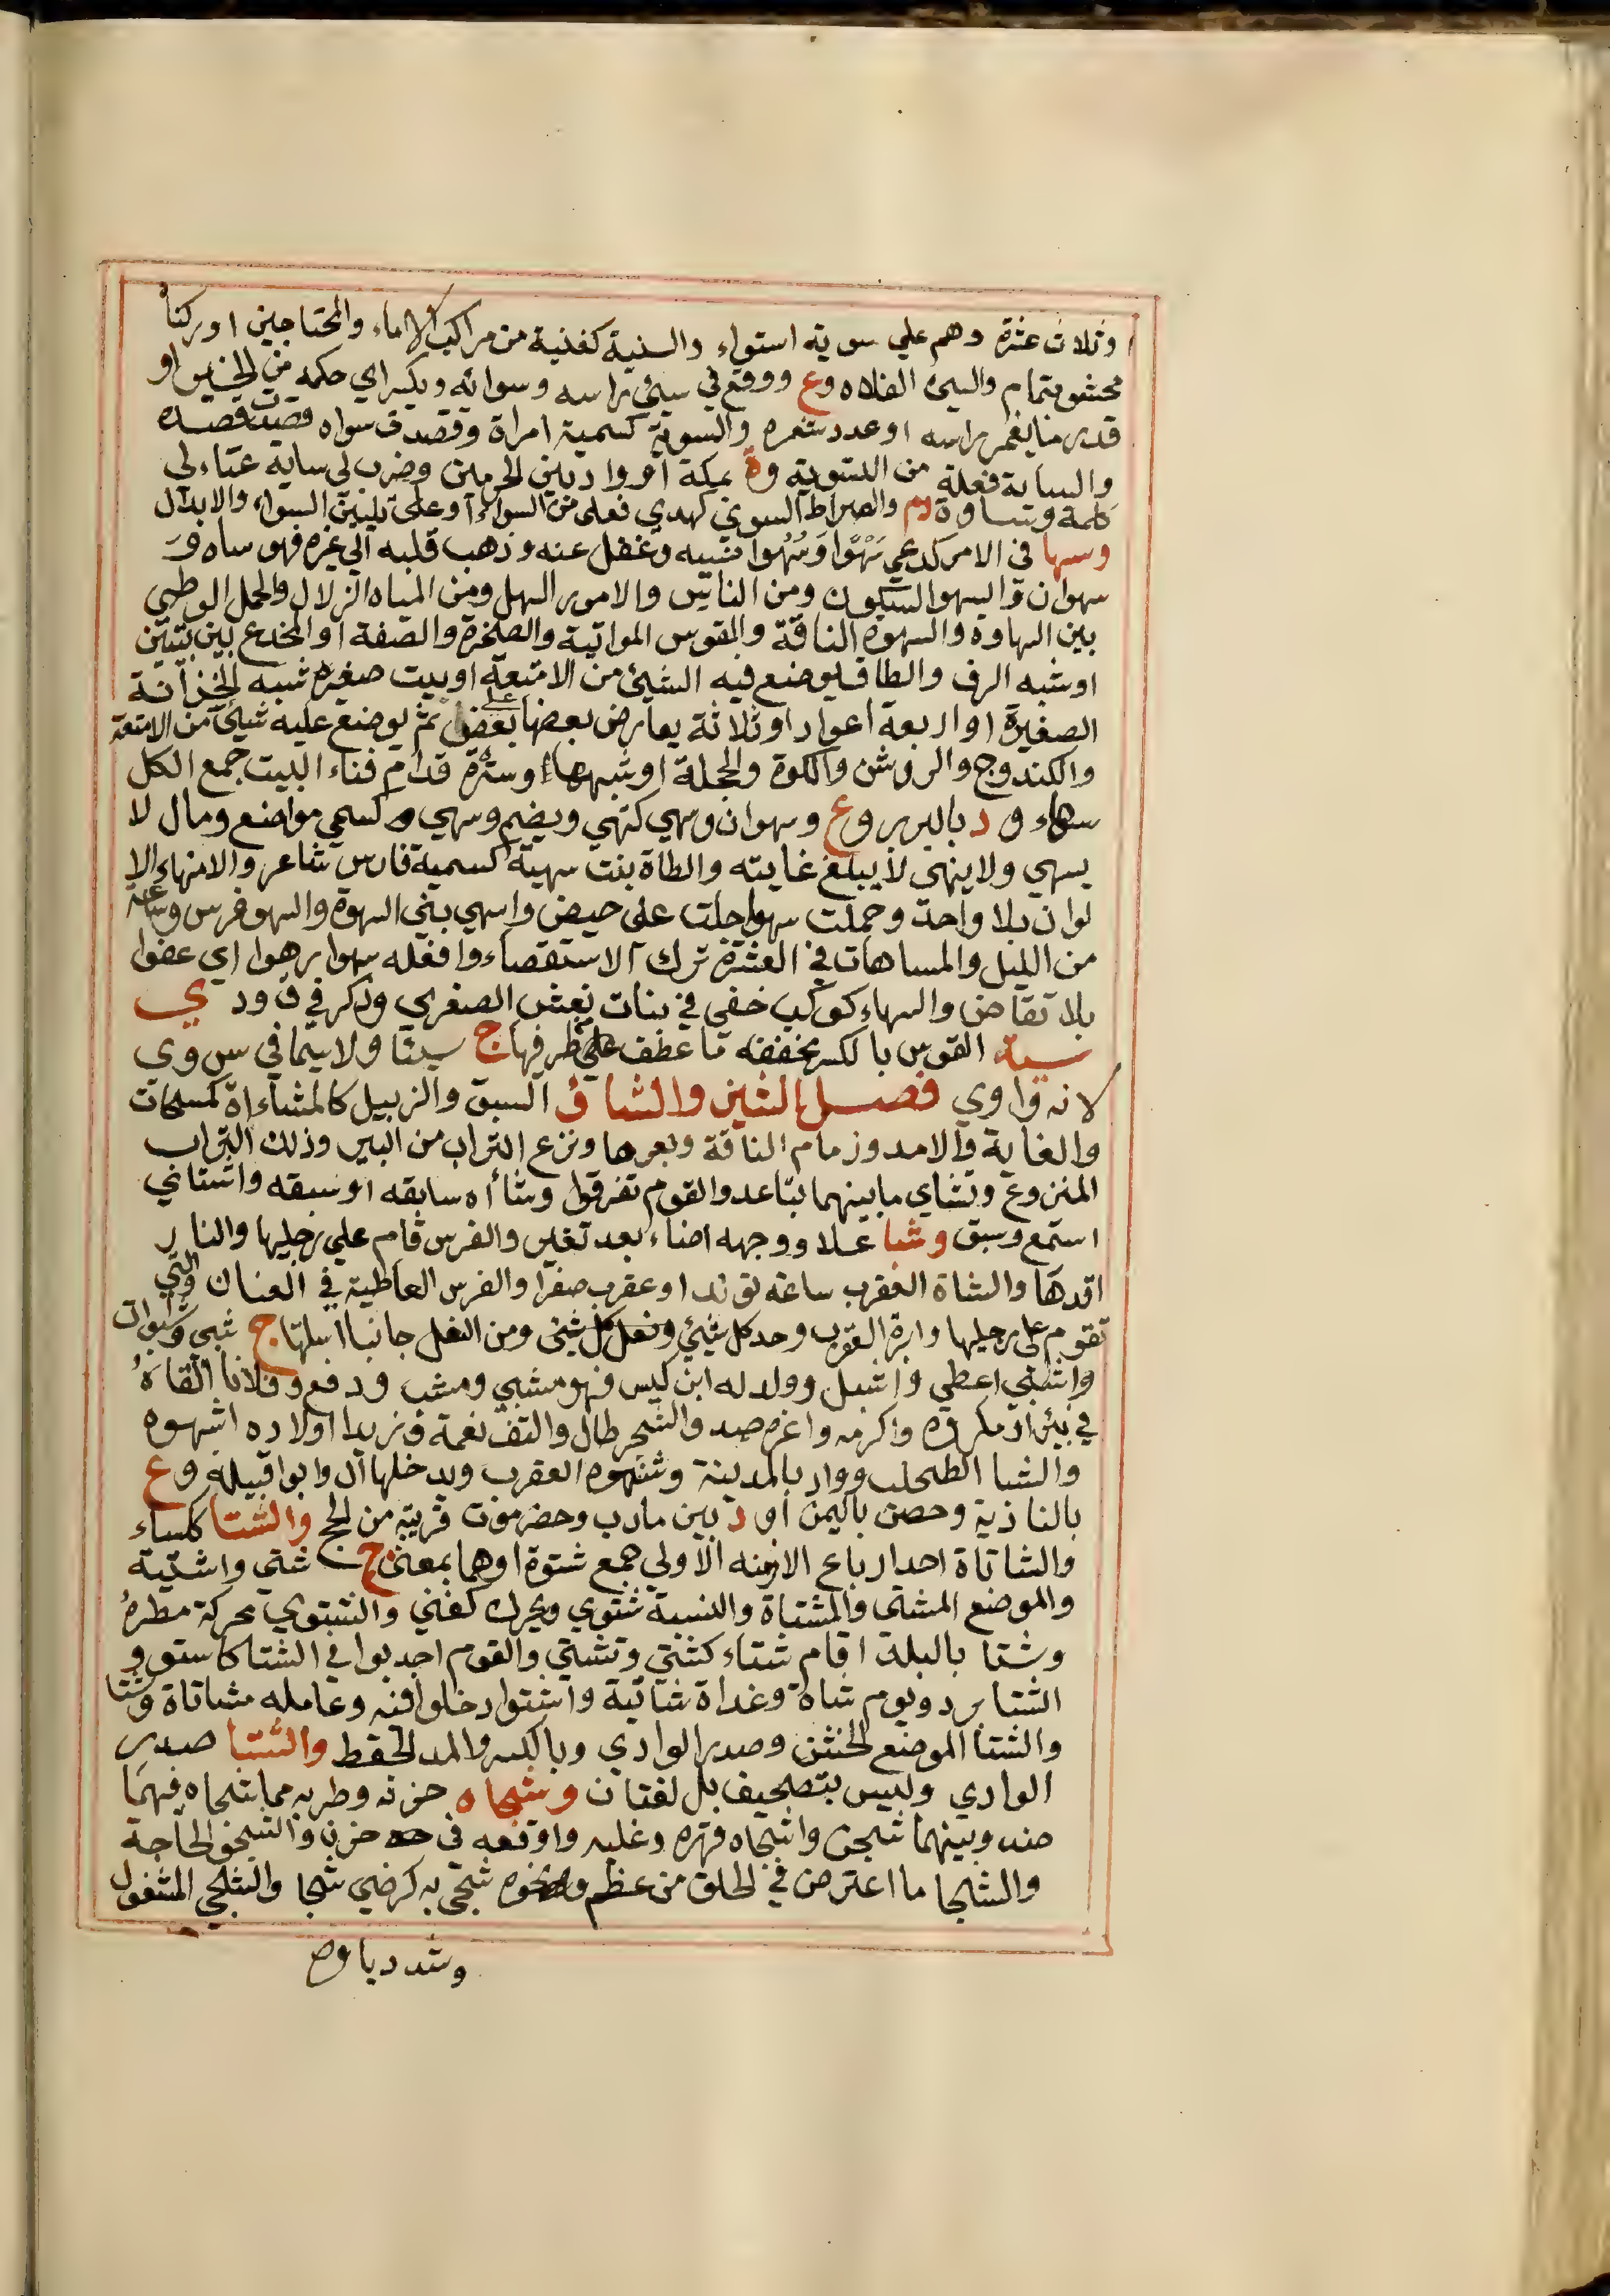 وثلاث عشرة وهم علي سوية استواء والسنية كغنية من مراكب الاماء والمحتاجين اوركتا
محشو بثمام والسى الفلاه وع ووقع في سي راسه وسوائه ويكسر اي حكمه من الخير او
قدر ما يغمر راسه او عدد شعره والسوية كسمية امراة وقصدت سواه قصدت قصده
والساية فعلة من التسوية وة بمكة او واد بين الحرمين وضرب لي ساية عتاء لي
كلمة وساوة دم والصراط السوي كهدي فعلى من السواء او على تليين السواء والابدال
وسها في الامر كدعي سَهْوًا وَسُهُوا نسيه وغفل عنه وذهب قلبه الي غيره فهو ساه وَ
سهوان والسهو السكون ومن الناس والامور السهل ومن المياه الزلال والجمل الوطى
بين السهاوة والسهوة الناقة والقوس المواتية والصخرة والصفة او المخدع بين بيتين
او شبه الرف والطاق يوضع فيه الشيئ من الامتعة او بيت صغير شبه الخزانة
الصغيرة او اربعة اعواد او ثلاثة يعارض بعضها على بعض ثم يوضع عليه شيئ من الامتعة
والكندوج والروشن والكوة والحجلة او شبهها وسترة قدام فناء البيت جمع الكل
سهاء و د بالبربر وع وسهوان وسهي كنهي ويضم وسهي كسمي مواضع ومال لا
يسهي ولا ينهى لا يبلغ غايته والطاة بنت سهية كسمية فارس شاعر والاسهاء الا
لوان بلا واحد وحملت سهوا حلت على حيض واسهي بني السهوة والسهو فرس وساعة
من الليل والمساهاة في العشرة ترك الاستقصاء وافعله سهوا رهوا اي عفوا
بلا تقاض والسهاء كوكب خفى في بنات نعش الصغرى وذكر في ق و د ي
سية القوس بالكسر مخففه ما عطف على طرفها ج سيتا ولا سيما في س و ي
لانه واوي فصل الشين والشاؤ السبق والزبيل كالمشاءاة كمسحات
والغاية والامد وزمام الناقة وبعرها ونزع التراب من البير وذلك التراب
المنزوع وتشاي ما بينهما تباعد والقوم تفرقوا وشأاه سابقه او سبقه واشتاني
استمع وسبق وشبا علا ووجهه اضاء بعد تغير والفرس قام علي رجليها والنار
اقدها والشباة العقرب ساعة تولد او عقرب صفرا والفرس العاطية في العنان والتي
تقوم على رجليها وابرة العقرب وحد كل شيئ ومن النعل جانبا اسلتها ج شبى وشبوات
واشبي اعطي واشبل وولد له ابن كيس فهو مشبي ومشب ودفع وفلانا القاهُ
في بئر او مكروه واكرمه واعزه ضد والشجر طال والتف نعمة وزيدا اولاده اشبهوه
والشبا الطحلب وواد بالمدينة وشبوه العقرب ويدخلها ال وابو اقبيله وع
بالناذية وحصن باليمن او د بين مارب وحضرموت قريبة من لحج والشتا كلساء
والشاتاة احد ارباع الازمنه الاولي جمع شتوة او هما بمعنى ج شتي واشتية
والموضع المشتى والمشتاة والنسبة شتوي ويحرك كغني والشتوي محركة مطره
وشتا بالبلد اقام شتاء كشتي وتشتي والقوم اجدبوا في الشتا كاشتو و
الشتا برد ويوم شاة وغداة شاتية واشتوا دخلوا فيه وعامله مشاتاة وشتا
والشتا الموضع الخشن وصدر الوادي وبالكسر والمد القحط والشتا صدر
الوادي وليس بتصحيف بل لغتان وشجاه حزنه وطربه مما شجاه فيهما
ضد وبينهما شجن واشجاه قهره وغلبه واوقعه في حزن والشجو الحاجة
والشجا ما اعترض في الحلق من عظم ونحوه شجى به كرضي شجا والشجي المشغول
وشدد ياوه